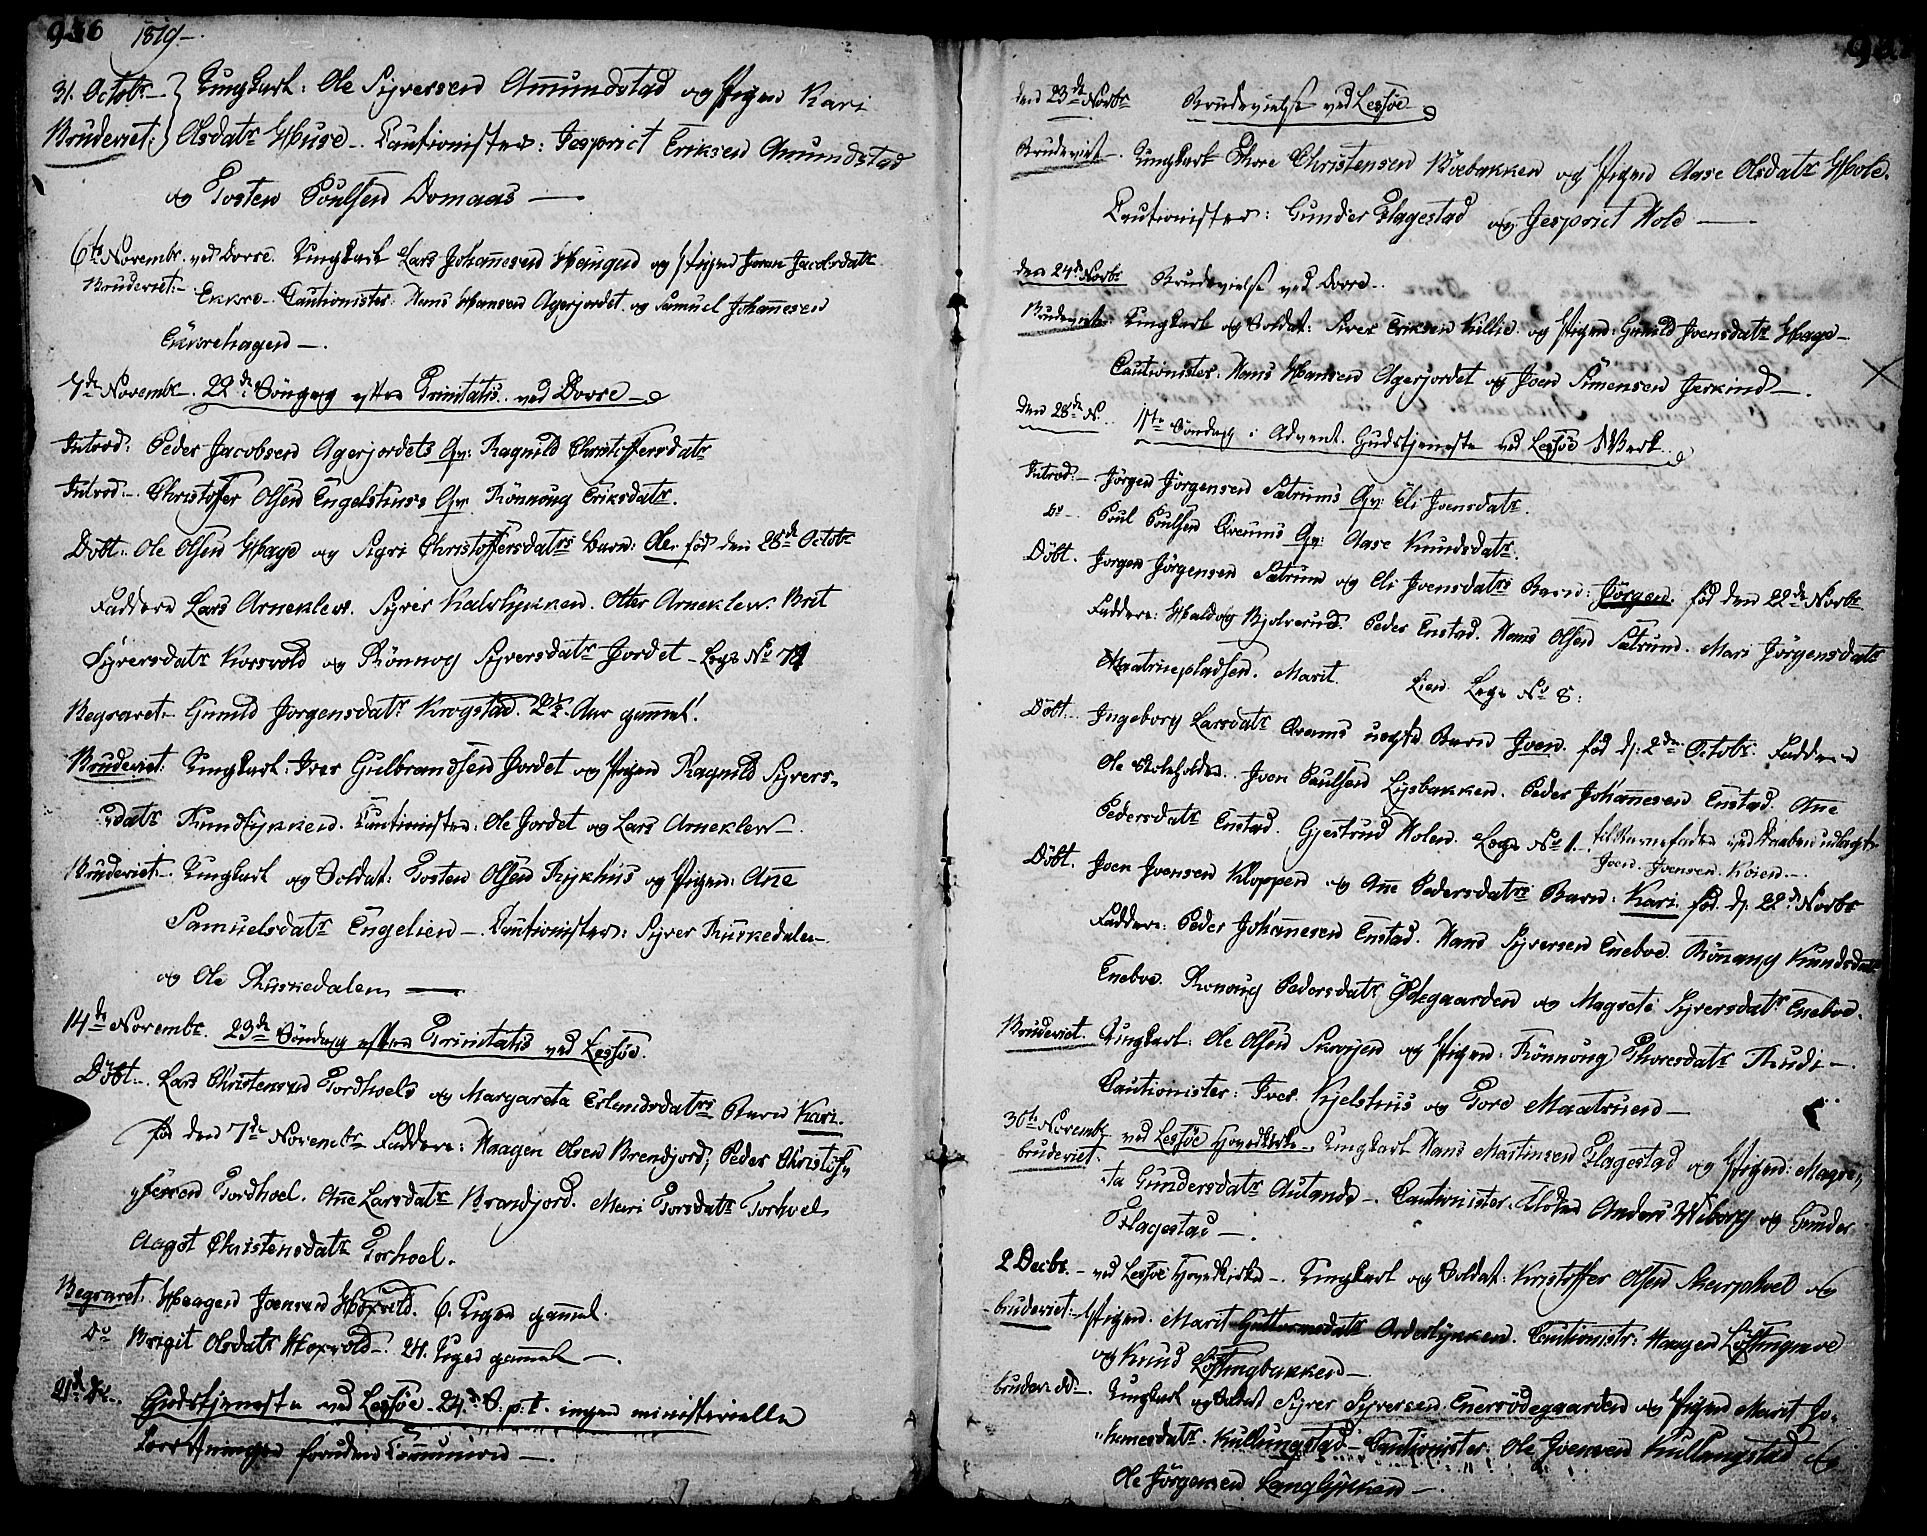 936 1819.
31. Octobr. Ungkarl: Ole Syversen Amundstad og Pigen Kari
Bruderiet: Olsdatr Huse. Cautionister: Jesprict Eriksen Amundstad
og Tosten Poulsen Domaas
6te Novembr. ved Dovre. Ungkarl Lars Johannesen Haugen og Pigen Joran Jacobsdatr
Bruderiet. Ekkre. Cautionister: Hans Hansen Agerjordet og Samuel Johannesen
Ekkrehagen
7de Novembr. 22de Søndag efter Trinitatis ved Dovre
Introd: Peder Jacobsen Agerjordets Qv: Ragnild Christoffersdatr
Introd: Christoffer Olsen Engelshus's Qv. Rønnoug Eriksdatr.
Døbt: Ole Olsen Hage og Sigri Christoffersdatrs Barn: Ole. fød den 28de Octobr
Faddere Lars Arneklev. Syver Kalvlykken. Otter Arneklev. Brit
Syversdatr Korsvold og Rønnog Syversdatr Jordet. Legs No 71
Begravet. Gunild Jorgensdatr Krogstad. 2½ Aar gammel.
Bruderiet: Ungkarl: Iver Gulbrandsen Jordet og Pigen Ragnild Syvers-
datr Rundlykken. Cautionister: Ole Jordet og Lars Arneklev.
Bruderiet. Ungkarl og Soldat: Tosten Olsen Rykhus og Pigen: Ane
Samuelsdatr Engelien. Cautionister: Syver Ruskedalen
og Ole Ruskedalen
14de Novembr. 23de Søndag efter Trinitatis ved Lessøe.
Døbt. Lars Christensen Tordhoels og Margareta Erlendsdatrs Barn Kari.
fød den 7de Novembr Faddere: Haagen Olsen Brendjord; Peder Christof-
fersen Tordhoel. Ane Larsdatr Brandjord. Mari Torsdatr Torhoel
Aagot Christensdatr Torhoel.
Begravet. Haagen Joensen Hoxvold. 6. Uger gammel.
Do Brigit Olsdatr Hoxvold. 24. Uger gammel.
21de Gudstjeneste ved Lessøe. 24de S. p: t. ingen ministerielle
Forretninger foruden Communion.
den 23de Novbr Brudevielse ved Lessøe
Brudeviet. Ungkarl Thore Christensen Bøebakken og Pigen Aase Olsdatr Hole.
Cautionister: Gunder Flagestad og Jesprict Hole
den 24de Novbr Brudevielse ved Dovre.
Brudeviet. Ungkarl og Soldat: Siver Eriksen Killie og Pigen: Gunild Joensdatr Hage
Cautionister: Hans Hansen Agerjordet og Joen Simensen Jerkind.
den 28de N. 1ste Søndag i Advent. Gudstjeneste ved Lessøe Werk
Introd: Jørgen Jørgensen Sætrums Qv: Eli Joensdatr.
Do Poul Poulsen Qveums Qv: Aase Knudsdatr.
Døbt. Jorgen Jørgensen Sætrum og Eli Joensdatrs Barn: Jørgen. fød den 22de Novbr
Faddere: Haldog Bjolverud. Peder Enstad. Hans Olsen Sætrum. Mari Jørgensdatr
Maatriepladsen. Marit Lien. Legs No 8:
Døbt. Ingeborg Larsdatr Qveums uægte Barn Joen. fød d: 2den Octobr. Faddere
Ole Stoleholden. Joen Paulsen Lysbakken. Peder Johannesen Enstad. Ane
Pedersdatr Enstad. Gjertrud Holen. Legs No 1. til Barnefader ved Daaben udlagt
Joen Joensen Koien.
Døbt. Joen Joensen Kloppen og Ane Pedersdatrs Barn: Kari. fød d: 22de Novbr
Faddere: Peder Johannesen Enstad. Hans Syversen Eneboe. Rønnaug Knudsdatr
Eneboe. Rønoug Pedersdatr Ødegaarden og Magrete Syversdatr Eneboe.
Bruderiet. Ungkarl: Ole Olsen Skovjen og Pigen: Rønnoug Thoresdatr Rudi.
Cautionister: Iver Kjelshus og Tore Maatruen
30te Novembr ved Lessøe Hovedkirke. Ungkarl Hans Mortinsen Flagestad og Pigen: Magre-
bruderiet. ta Gundersdatr Autande. Cautionister. Anders Wiborg og Gunder
Flagestad.
2 Decbr. ved Lessøe Hovedkirke. Ungkarl og Soldat: Kristoffer Olsen Skarphoel og
bruderiet. Pigen. Marit Guttormsdatr Orderlykken. Cautionistr: Haagen Løftingmoe
og Knud Løftingbakken
Ungkarl og Soldat Syver Syversen Enersødegaarden og Pigen Marit Jo-
hanesdatr. Kullungstad. Cautionister. Ole Joensen Kullungstad og
Ole Jørgensen Langlykken